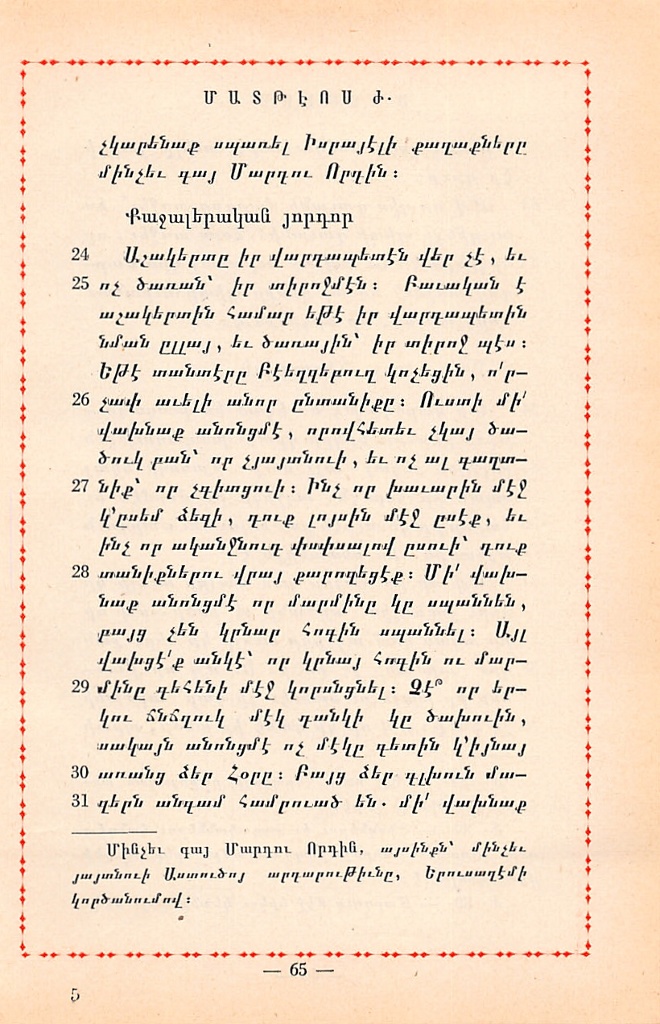 ՄԱՏԹԷՈՍ Ժ.
չկարենաք սպառել Իսրայէլի քաղաքները
մինչեւ գայ Մարդու Որդին։
Քաջալերական յորդոր
24 Աշակերտը իր վարդապետէն վեր չէ, եւ
25 ոչ ծառան՝ իր տիրոջմէն։ Բաւական է
աշակերտին համար եթէ իր վարդապետին
նման ըլլայ, եւ ծառային՝ իր տիրոջ պէս։
Եթէ տանտէրը Բէեղզեբուղ կոչեցին, ո՛ր-
26 չափ աւելի անոր ընտանիքը։ Ուստի մի՛
վախնաք անոնցմէ, որովհետեւ չկայ ծա-
ծուկ բան՝ որ չյայտնուի, եւ ոչ ալ գաղտ-
27 նիք՝ որ չգիտցուի։ Ինչ որ խաւարին մէջ
կ՚ըսեմ ձեզի, դուք լոյսին մէջ ըսէք, եւ
ինչ որ ականջնուդ փսփսալով ըսուի՝ դուք
28 տանիքներու վրայ քարոզեցէք։ Մի՛ վախ-
նաք անոնցմէ որ մարմինը կը սպաննեն,
բայց չեն կրնար հոգին սպաննել։ Այլ
վախցէ՛ք անկէ՝ որ կրնայ հոգին ու մար-
29 մինը գեհենի մէջ կորսնցնել։ Չէ՞ որ եր-
կու ճնճղուկ մէկ դանկի կը ծախուին,
սակայն անոնցմէ ոչ մէկը գետին կ՚իյնայ
30 առանց ձեր Հօրը։ Բայց ձեր գլխուն մա-
31 զերն անգամ համրուած են. մի՛ վախնաք
Մինչեւ գայ Մարդու Որդին, այսինքն՝ մինչեւ
յայտնուի Աստուծոյ արդարութիւնը, Երուսաղէմի
կործանումով։
— 65 —
5